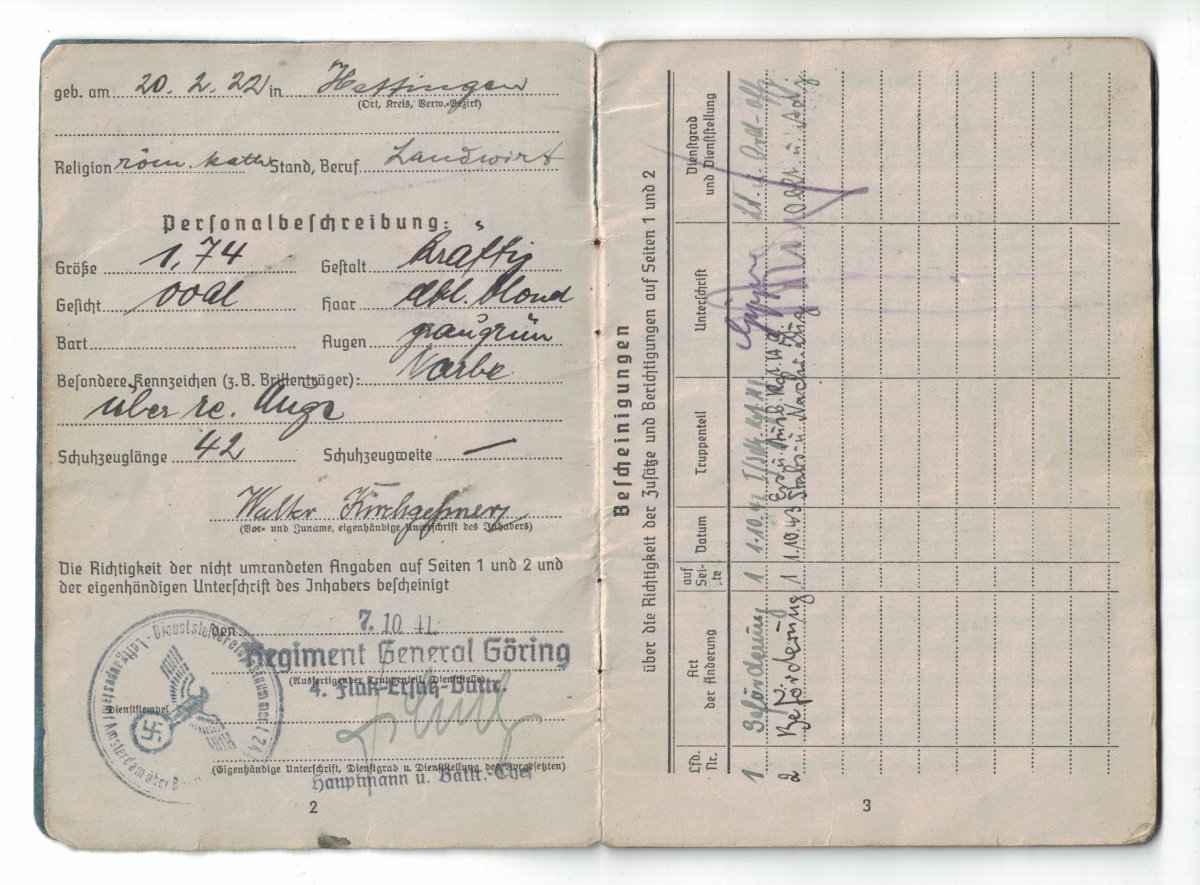 geb. am 20. 2. 22 in Hettingen
(Ort, Kreis, Verw.-Bezirk)
Religion röm. kath. Stand, Beruf Landwirt
Personalbeschreibung:
Größe 1,74 Gestalt kräftig
Gesicht oval Haar dkl. blond
Bart Augen graugrün
Besondere Kennzeichen (z.B. Brillenträger): Narbe
über re. Auge
Schuhzeuglänge 42 Schuhzeugweite —
Walter Kirchgessner
(Vor- und Zuname, eigenhändige Unterschrift des Inhabers)
Die Richtigkeit der nicht umrandeten Angaben auf Seiten 1 und 2 und
der eigenhändigen Unterschrift des Inhabers bescheinigt
den 7. 10. 41.
Regiment General Göring
(Ausfertigender Truppenteil, Dienststelle)
4. Flak-Ersatz-Battr.
Dienststempel
(Eigenhändige Unterschrift, Dienstgrad u. Dienststellung des Vorgesetzten)
Hauptmann u. Battr.-Chef
2
Bescheinigungen
über die Richtigkeit der Zusätze und Berichtigungen auf Seiten 1 und 2
Lfd. Nr. Art der Änderung auf Sei- te Datum Truppenteil Unterschrift Dienstgrad und Dienststellung
1 Beförderung 1 1.10.42
2 Beförderung 1 1.10.43
3